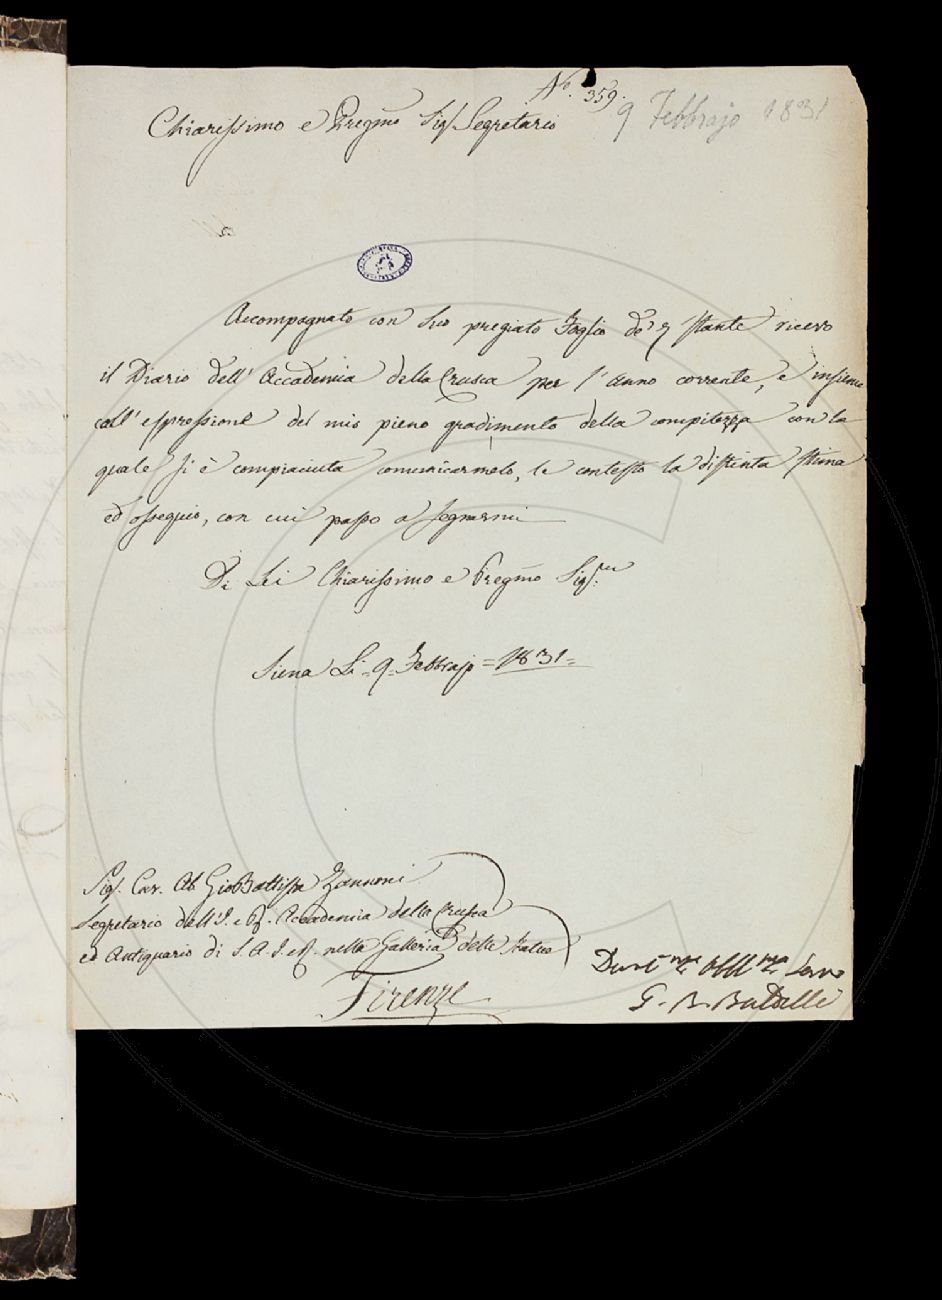 N.º 359.
9 Febbrajo 1831
Chiarissimo e Pregmo Sigr Segretario
Accompagnato con suo pregiato Foglio de' 7 stante ricevo
il Diario dell' Accademia della Crusca per l' anno corrente, e insieme
coll' espressione del mio pieno gradimento della compitezza con la
quale si è compiaciuta comunicarmelo, le contesto la distinta stima
ed ossequio, con cui passo a segnarmi
Di Lei Chiarissimo e Pregmo Sigre
Siena Li 9 Febbrajo = 1831 =
Sigr. Cav. Ab GioBattista Zannoni
Segretario dell' I. e R. Accademia della Crusca
ed Antiquario di S. A. I. e R. nella Galleria delle Statue
Firenze
Devmo Obblmo Servo
G. B. Baldelli